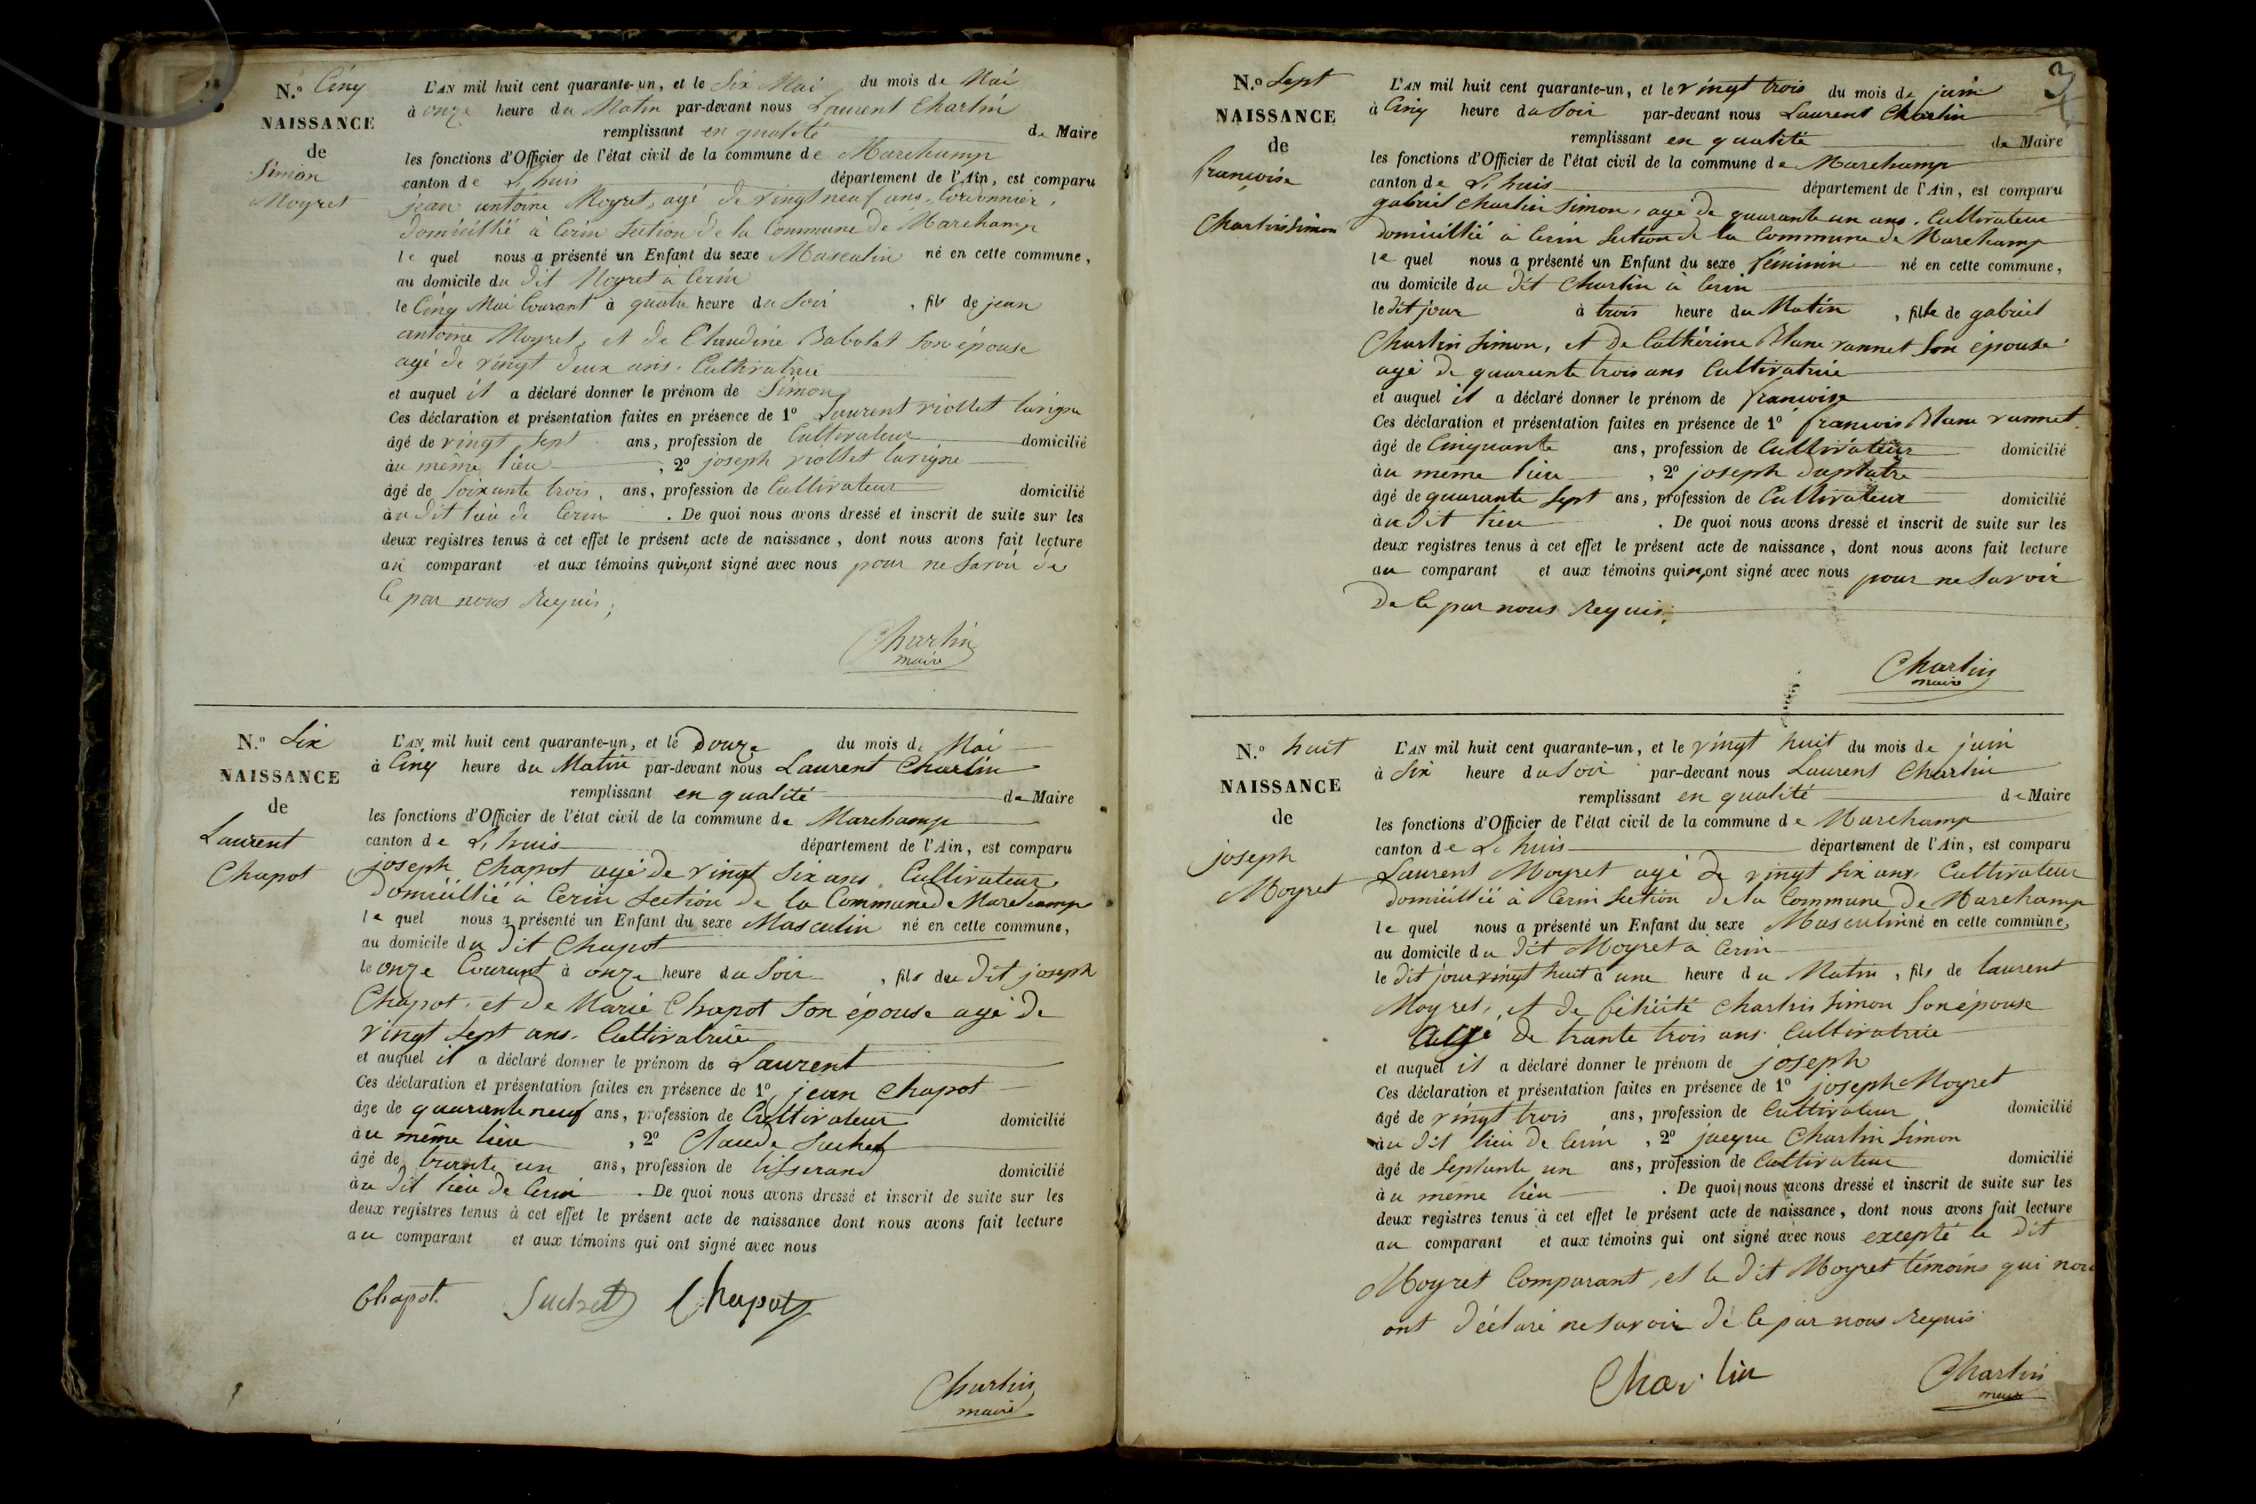 N.º Cinq
NAISSANCE
de
Simon
Moyret
L'AN mil huit cent quarante-un, et le Six Mai du mois de Mai
à onze heure du Matin par-devant nous Laurent Charlin
remplissant en qualité de Maire
les fonctions d'Officier de l'état civil de la commune de Marchamp
canton de L'huis département de l'Ain, est comparu
jean antoine Moyret, agé de vingt neuf ans, Cordonnier,
domicillié à Cerin Section de la Commune de Marchamp
le quel nous a présenté un Enfant du sexe Masculin né en cette commune,
au domicile du dit Moyret à Cerin
le Cinq Mai Courant à quatre heure du Soir , fils de jean
antoine Moyret, et de Claudine Babolat Son épouse
agé de vingt deux ans. Cultivatrice
et auquel il a déclaré donner le prénom de Simon
Ces déclaration et présentation faites en présence de 1º Laurent viollet lavigne
âgé de vingt Sept ans, profession de Cultivateur domicilié
au même lieu , 2º joseph viollet lavigne
âgé de Soixante trois, ans, profession de Cultivateur domicilié
au dit lieu de Cerin . De quoi nous avons dressé et inscrit de suite sur les
deux registres tenus à cet effet le présent acte de naissance, dont nous avons fait lecture
au comparant et aux témoins qui n'ont signé avec nous pour ne Savoir de
Ce par nous Requis;
Charlin
maire
N.º Six
NAISSANCE
de
Laurent
Chapot
L'AN mil huit cent quarante-un, et le Douze du mois de Mai
à Cinq heure du Matin par-devant nous Laurent Charlin
remplissant en qualité de Maire
les fonctions d'Officier de l'état civil de la commune de Marchamp
canton de L'huis département de l'Ain, est comparu
joseph Chapot agé de vingt Six ans, Cultivateur
domicillié à Cerin Section de la Commune de Marchamp
le quel nous a présenté un Enfant du sexe Masculin né en cette commune,
au domicile du dit Chapot
le onze Courant à onze heure du Soir , fils du dit joseph
Chapot. et de Marie Chapot Son épouse agé de
vingt Sept ans. Cultivatrice
et auquel il a déclaré donner le prénom de Laurent
Ces déclaration et présentation faites en présence de 1º jean Chapot
âge de quarante neuf ans, profession de Cultivateur domicilié
au même lieu , 2º Claude Suchet
âgé de trante un ans, profession de tisserand domicilié
au dit lieu de Cerin . De quoi nous avons dressé et inscrit de suite sur les
deux registres tenus à cet effet le présent acte de naissance dont nous avons fait lecture
au comparant et aux témoins qui ont signé avec nous
Chapot. Suchet Chapot
Charlin
maire
3
N.º Sept
NAISSANCE
de
françoise
Charlin Simon
L'AN mil huit cent quarante-un, et le vingt trois du mois de juin
à Cinq heure du Soir par-devant nous Laurent Charlin
remplissant en qualité de Maire
les fonctions d'Officier de l'état civil de la commune de Marchamp
canton de L'huis département de l'Ain, est comparu
gabriel Charlin Simon, agé de quarante un ans, Cultivateur
domicillié à Cerin Section de la Commune de Marchamp
le quel nous a présenté un Enfant du sexe feminin né en cette commune,
au domicile du dit Charlin à Cerin
le dit jour à trois heure du Matin , fille de gabriel
Charlin Simon, et de Cathérine Blanc vannet Son épouse
agé de quarante trois ans Cultivatrice
et auquel il a déclaré donner le prénom de françoise
Ces déclaration et présentation faites en présence de 1º francois Blanc vannet
âgé de Cinquante ans, profession de Cultivateur domicilié
au même lieu , 2º joseph duplatre
âgé de quarante Sept ans, profession de Cultivateur domicilié
au dit lieu . De quoi nous avons dressé et inscrit de suite sur les
deux registres tenus à cet effet le présent acte de naissance, dont nous avons fait lecture
au comparant et aux témoins qui n'ont signé avec nous pour ne Savoir
De Ce par nous Requis;
Charlin
maire
N.º huit
NAISSANCE
de
joseph
Moyret
L'AN mil huit cent quarante-un, et le vingt huit du mois de juin
à Six heure du Soir par-devant nous Laurent Charlin
remplissant en qualité de Maire
les fonctions d'Officier de l'état civil de la commune de Marchamp
canton de L'huis département de l'Ain, est comparu
Laurent Moyret agé de vingt Six ans, Cultivateur
domicillié à Cerin Section de la Commune de Marchamp
le quel nous a présenté un Enfant du sexe Masculin né en cette commune,
au domicile du dit Moyret à Cerin
le dit jour vingt huit à une heure du Matin , fils de laurent
Moyret, et de félicité Charlin Simon Son épouse
agé de trante trois ans Cultivatrice
et auquel il a déclaré donner le prénom de joseph
Ces déclaration et présentation faites en présence de 1º joseph Moyret
âgé de vingt trois ans, profession de Cultivateur domicilié
au dit lieu de Cerin , 2º jacque Charlin Simon
âgé de Septante un ans, profession de Cultivateur domicilié
au même lieu . De quoi nous avons dressé et inscrit de suite sur les
deux registres tenus à cet effet le présent acte de naissance, dont nous avons fait lecture
au comparant et aux témoins qui ont signé avec nous excepté le dit
Moyret Comparant, et le dit Moyret témoins qui nous
ont déclaré ne Savoir de Ce par nous Requis
Charlin Charlin
maire